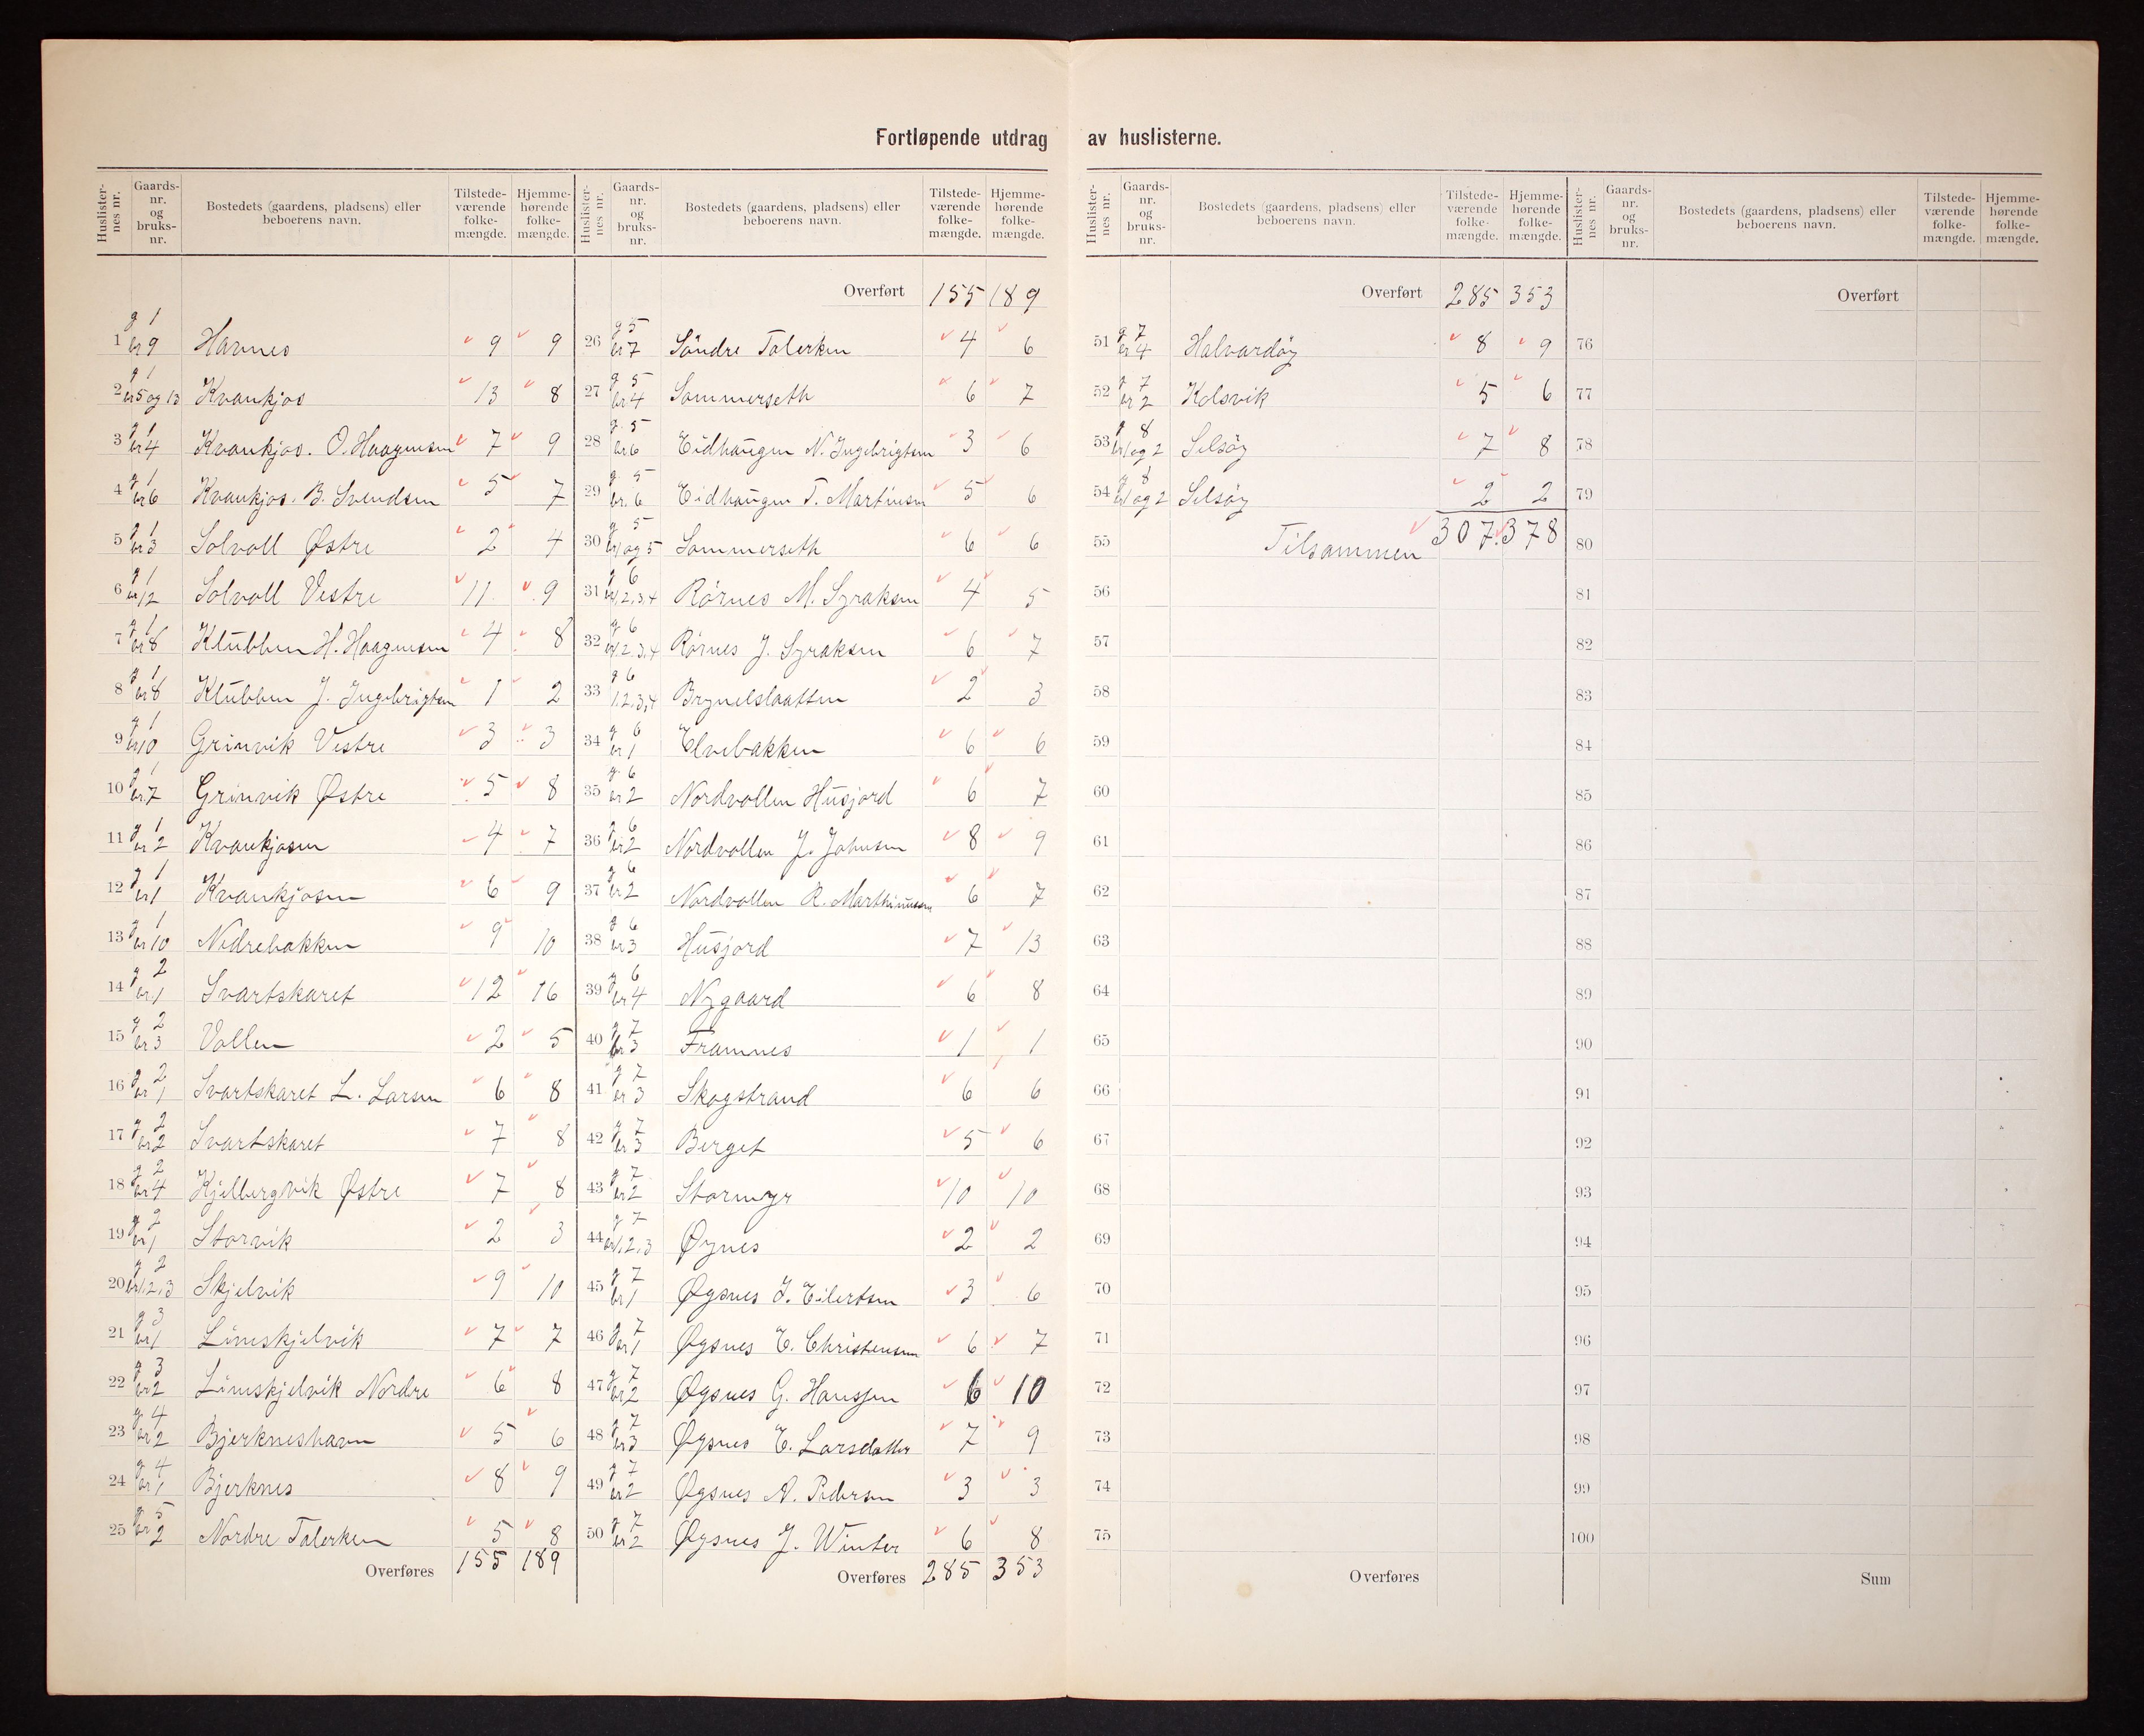 Fortløpende utdrag av huslisterne.
Huslisternes nr. Gaards-nr. og bruks-nr. Bostedets (gaardens, pladsens) eller beboerens navn. Tilstede-værende folke-mængde. Hjemme-hørende folke-mængde.
1 g 1 br 9 Havnes 9 9
2 g 1 br 5 og 13 Kvankjos 13 8
3 g 1 br 4 Kvankjos. O. Haagensen 7 9
4 g 1 br 6 Kvankjos. B. Svendsen 5 7
5 g 1 br 3 Solvoll Østre 2 4
6 g 1 br 12 Solvoll Vestre 11 9
7 g 1 br 8 Klubben H. Haagensen 4 8
8 g 1 br 8 Klubben J. Ingebrigtsen 1 2
9 g 1 br 10 Grinvik Vestre 3 3
10 g 1 br 7 Grinvik Østre 5 8
11 g 1 br 2 Kvankjosen 4 7
12 g 1 br 1 Kvankjosen 6 9
13 g 1 br 10 Nedrebakken 9 10
14 g 2 br 1 Svartskaret 12 16
15 g 2 br 3 Vollen 2 5
16 g 2 br 1 Svartskaret L. Larsen 6 8
17 g 2 br 2 Svartskaret 7 8
18 g 2 br 4 Kjelbergvik Østre 7 8
19 g 2 br 1 Storvik 2 3
20 g 2 br 1,2,3 Skjelvik 9 10
21 g 3 br 1 Linnskjelvik 7 7
22 g 3 br 2 Linnskjelvik Nordre 6 8
23 g 4 br 2 Bjerkneshavn 5 6
24 g 4 br 1 Bjerknes 8 9
25 g 5 br 2 Nordre Tolerken 5 8
Overføres 155 189
Huslisternes nr. Gaards-nr. og bruks-nr. Bostedets (gaardens, pladsens) eller beboerens navn. Tilstede-værende folke-mængde. Hjemme-hørende folke-mængde.
Overført 155 189
26 g 5 br 7 Söndre Tolerken 4 6
27 g 5 br 4 Sommerseth 6 7
28 g. 5 br. 6 Eidhaugen N. Ingebrigtsen 3 6
29 g. 5 br. 6 Eidhaugen T. Martinsen 5 6
30 g 5 br 1 og 5 Sommerseth 6 6
31 g 6 br 1,2,3,4 Rörnes M. Syraksen 4 5
32 g 6 br 1,2,3,4 Rörnes J. Syraksen 6 7
33 g 6 1,2,3,4 Brynelslaatten 2 3
34 g 6 br 1 Elvebakken 6 6
35 g. 6 br 2 Nordvollen Husjord 6 7
36 g 6 br 2 Nordvollen J. Johnsen 8 9
37 g 6 br 2 Nordvollen R. Marthinussen 6 7
38 g 6 br 3 Husjord 7 13
39 g 6 br 4 Nygaard 6 8
40 g 7 br 3 Framnes 1 1
41 g 7 br 3 Skogstrand 6 6
42 g 7 br 3 Berget 5 6
43 g 7 br 2 Stormyr 10 10
44 g 7 br 1,2,3 Øynes 2 2
45 g 7 br 1 Øysnes J. Eilertsen 3 6
46 g 7 br 1 Øysnes E. Christensen 6 7
47 g 7 br 2 Øysnes G. Hanssen 6 10
48 g 7 br 3 Øysnes E. Larsdatter 7 9
49 g 7 br 2 Øysnes A. Pedersen 3 3
50 g 7 br 2 Øysnes J. Winter 6 8
Overføres 285 353
Huslisternes nr. Gaards-nr. og bruks-nr. Bostedets (gaardens, pladsens) eller beboerens navn. Tilstede-værende folke-mængde. Hjemme-hørende folke-mængde.
Overført 285 353
51 g 7 br 4 Halvardöy 8 9
52 g 7 br 2 Kolsvik 5 6
53 g 8 br 1 og 2 Selsöy 7 8
54 g 8 br 1 og 2 Selsöy 2 2
55 Tilsammen 307. 378
56
57
58
59
60
61
62
63
64
65
66
67
68
69
70
71
72
73
74
75
Overføres
Huslisternes nr. Gaards-nr. og bruks-nr. Bostedets (gaardens, pladsens) eller beboerens navn. Tilstede-værende folke-mængde. Hjemme-hørende folke-mængde.
Overført
76
77
78
79
80
81
82
83
84
85
86
87
88
89
90
91
92
93
94
95
96
97
98
99
100
Sum